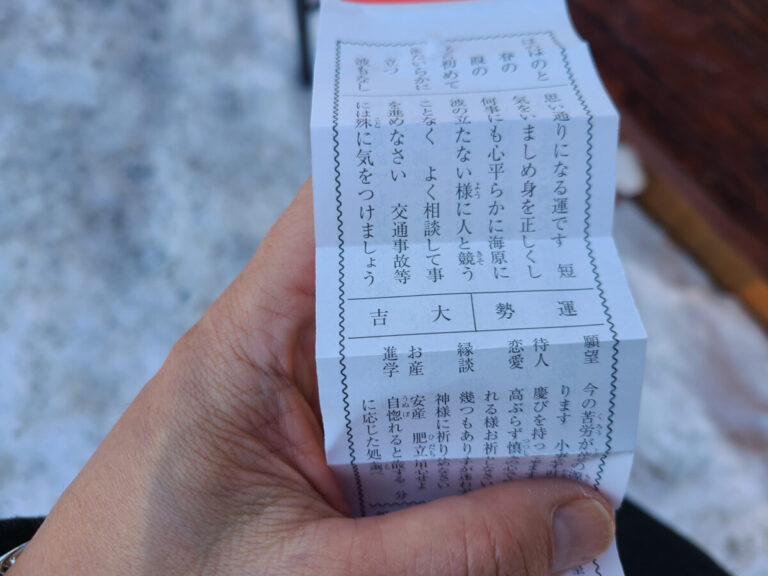 春の
霞の
初めて
たいらかに
立つ
波もなし
思い通りになる運です 短
気をいましめ身を正しくし
何事にも心平らかに海原に
波の立たない様に人と競う
ことなく よく相談して事
を進めなさい 交通事故等
には殊に気をつけましょう
運勢
大吉
願望 今の苦労が
ります
待人 慶びを持って
恋愛 高ぶらず慎
れる様お祈り
縁談 幾つもありますが
神様に祈り
お産 安産 肥立用心せよ
進学 自惚れると 分
に応じた処